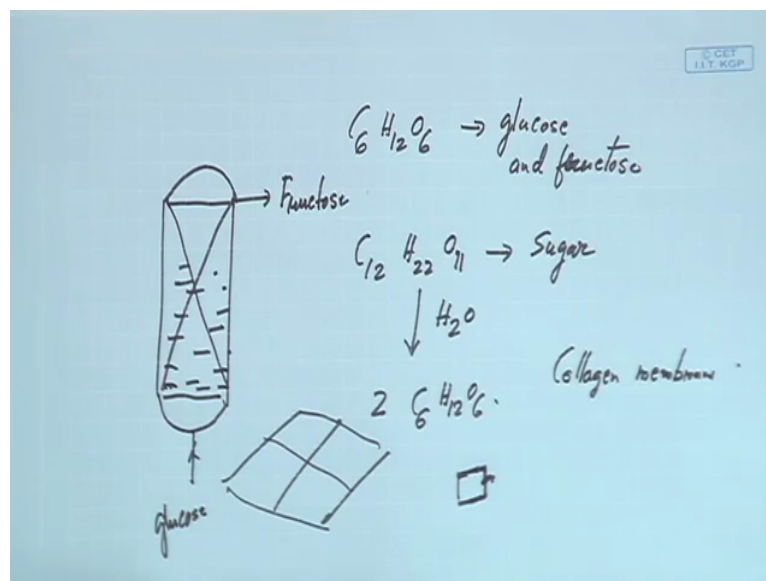 © CET
I.I.T. KGP
C6H12O6 → glucose
and fructose
Fructose
C12 H22 O11 → Sugar
H2O
Collagen membrane
2 C6H12O6.
glucose